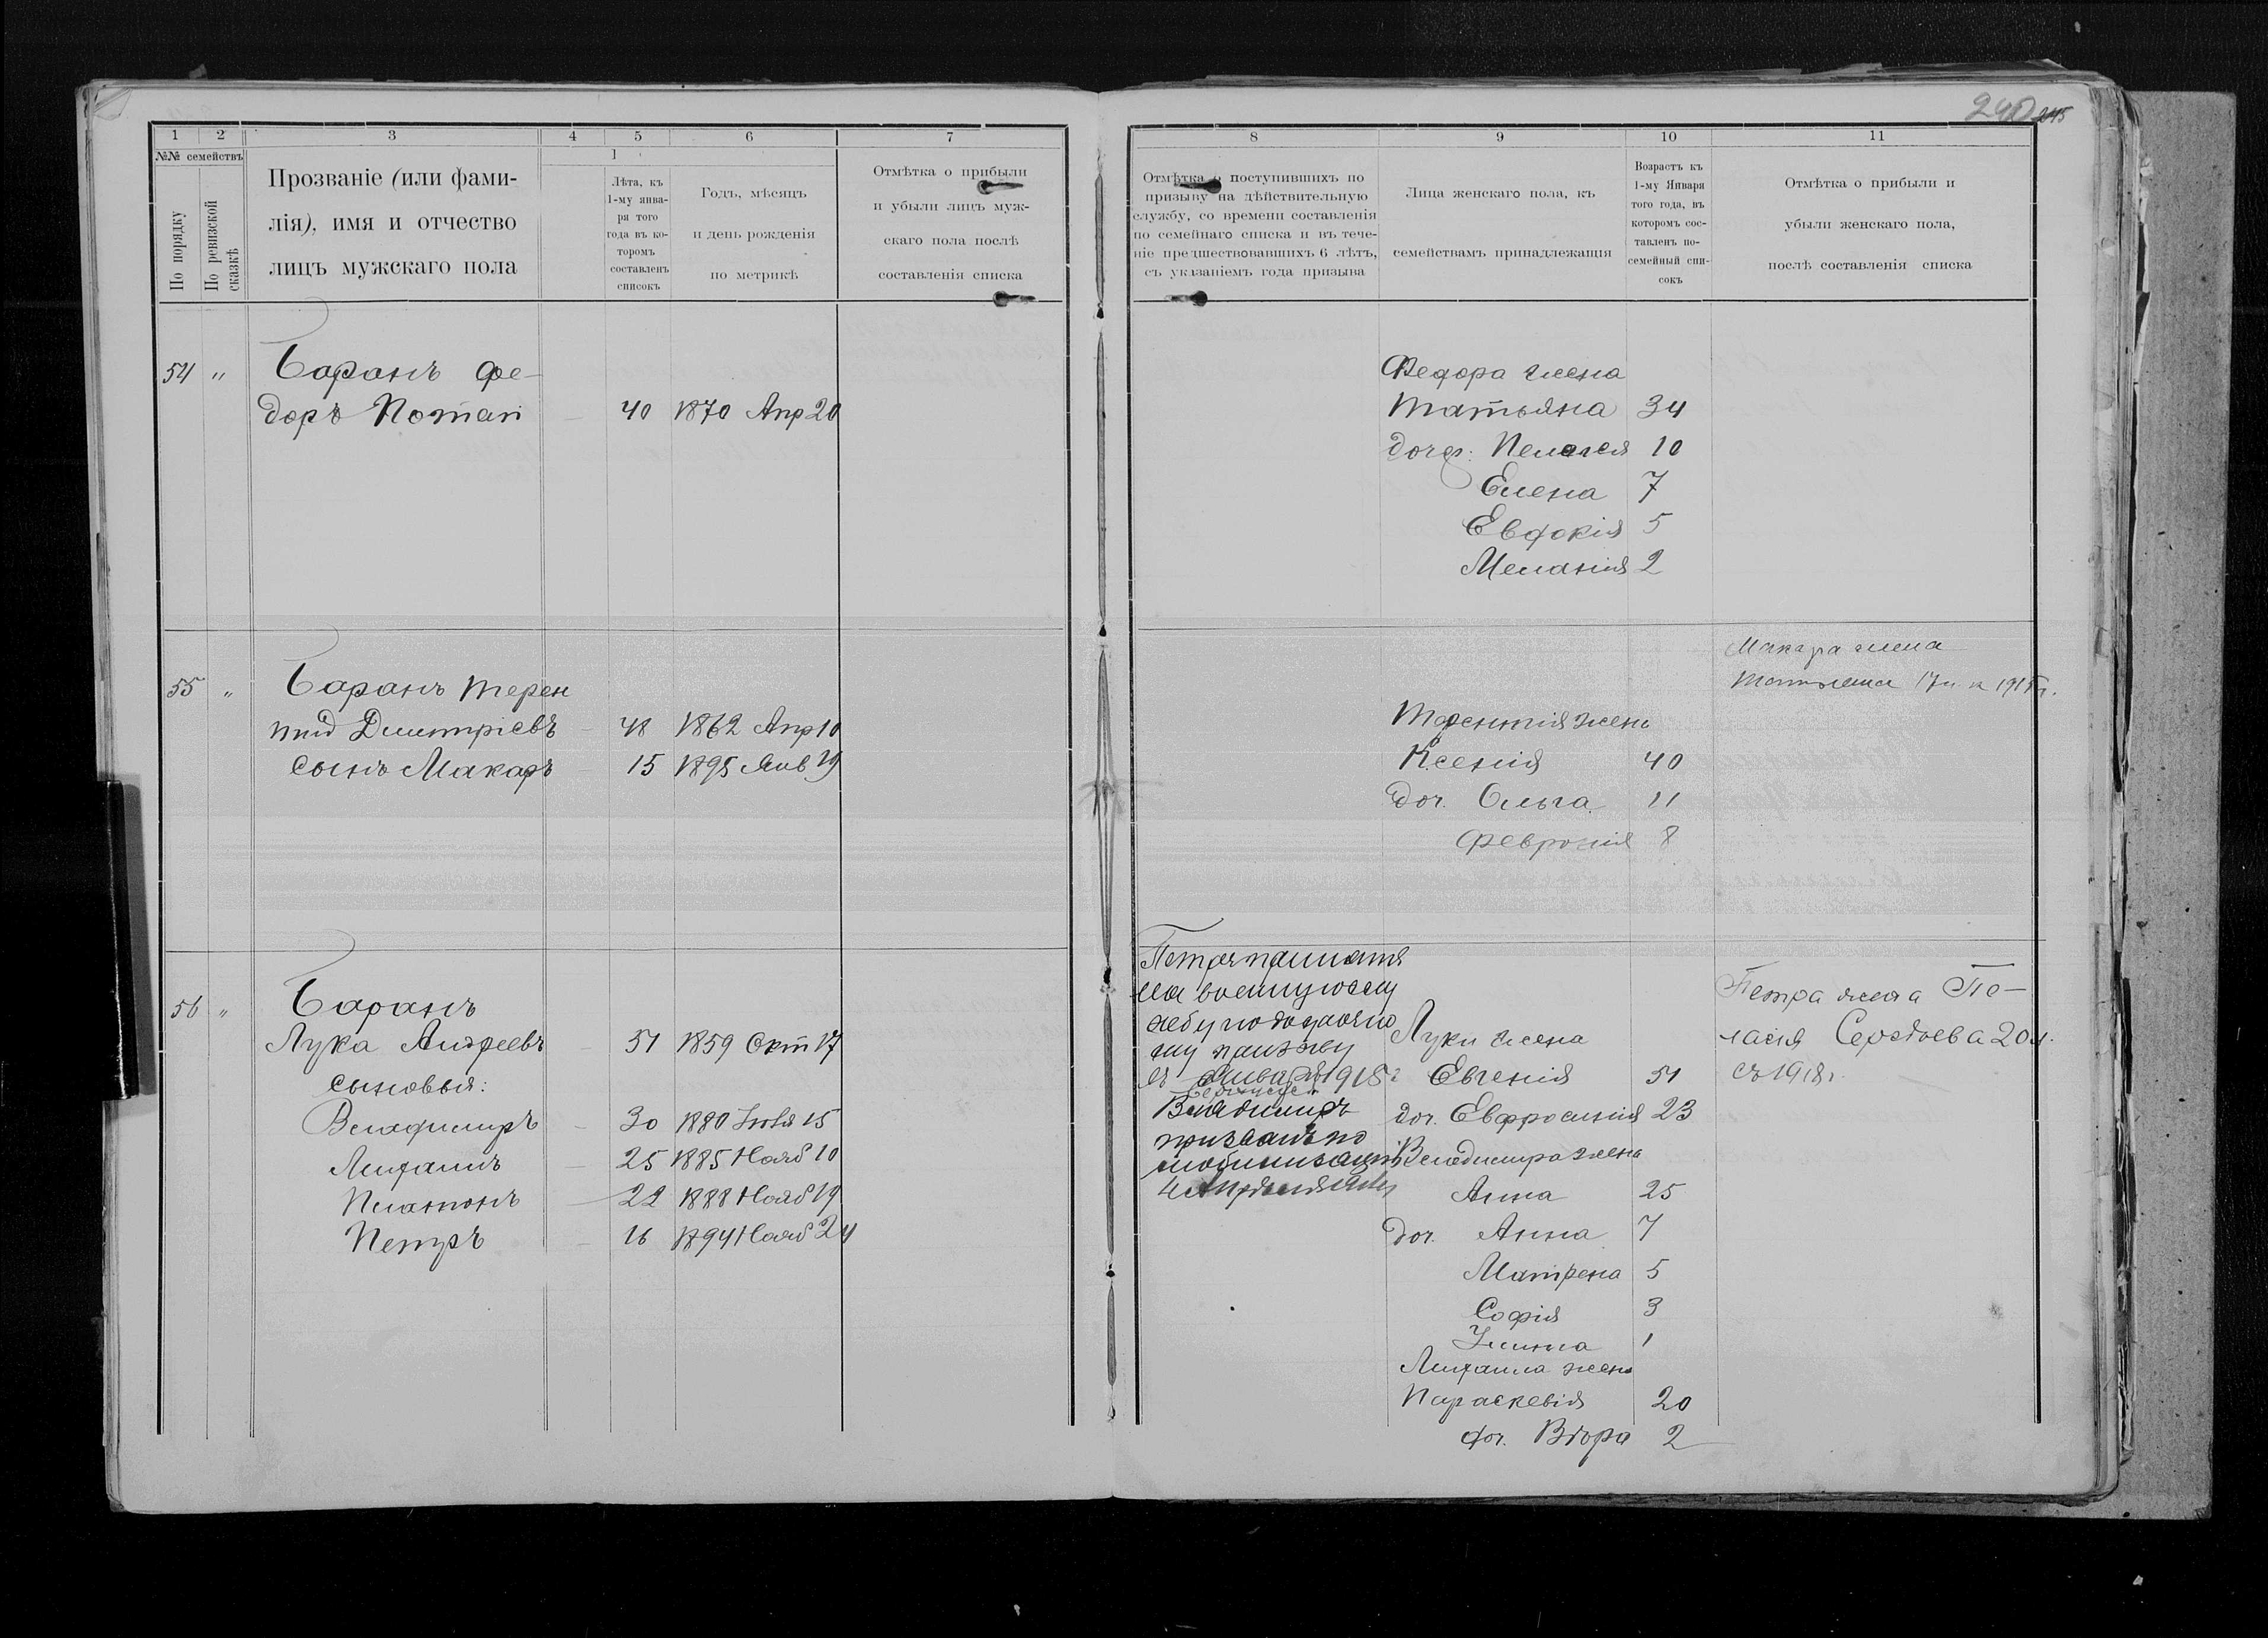 240 245
1 2 3 4 5 6 7
№№ семействъ
По порядку
По ревизской сказкѣ
Прозваніе (или фами-
лія), имя и отчество
лицъ мужскаго пола
1
Лѣта, къ
1-му янва-
ря того
года въ ко-
торомъ
составленъ
списокъ
Годъ, мѣсяцъ
и день рожденія
по метрикѣ
Отмѣтка о прибыли
и убыли лицъ муж-
скаго пола послѣ
составленія списка
54 " Баранъ Фе-
доръ Потап 40 1870 Апр 20
55 " Баранъ Терен
тій Дмитріевъ 48 1862 Апр 10
сынъ Макаръ 15 1895 Янв 19
56 " Баранъ
Лука Андреевъ 51 1859 Окт 17
сыновья:
Владимиръ 30 1880 Іюля 15
Михаилъ 25 1885 Нояб 10
Платонъ 22 1888 Нояб 19
Петръ 16 1894 Нояб 24
8 9 10 11
Отмѣтка о поступившихъ по
призыву на дѣйствительную
службу, со времени составленія
по семейнаго списка и въ тече-
ніе предшествовавшихъ 6 лѣтъ,
съ указаніемъ года призыва
Лица женскаго пола, къ
семействамъ принадлежащія
Возрастъ къ
1-му Января
того года, въ
которомъ сос-
тавленъ по-
семейный спи-
сокъ
Отмѣтка о прибыли и
убыли женскаго пола,
послѣ составленія списка
Федора жена
Татьяна 34
дочер: Пелагея 10
Елена 7
Евдокія 5
Меланія 2
Макара жена
Татьяна 17 л.
Терентія жена
Ксенія 40
доч. Ольга 11
Февронія 8
Петръ принятъ
на военную слу
жбу по досрочно
му призыву
1915 г
Владимиръ
призванъ по
мобилизаціи
Луки жена
Евгенія 51
доч. Евфросинія 23
Владимира жена
Анна 25
доч. Анна 7
Матрена 5
София 3
1
Михаила жена
Параскевія 20
доч. Вѣра 2
Петра жена Пе-
лагія 20 л.
съ 1918 г.